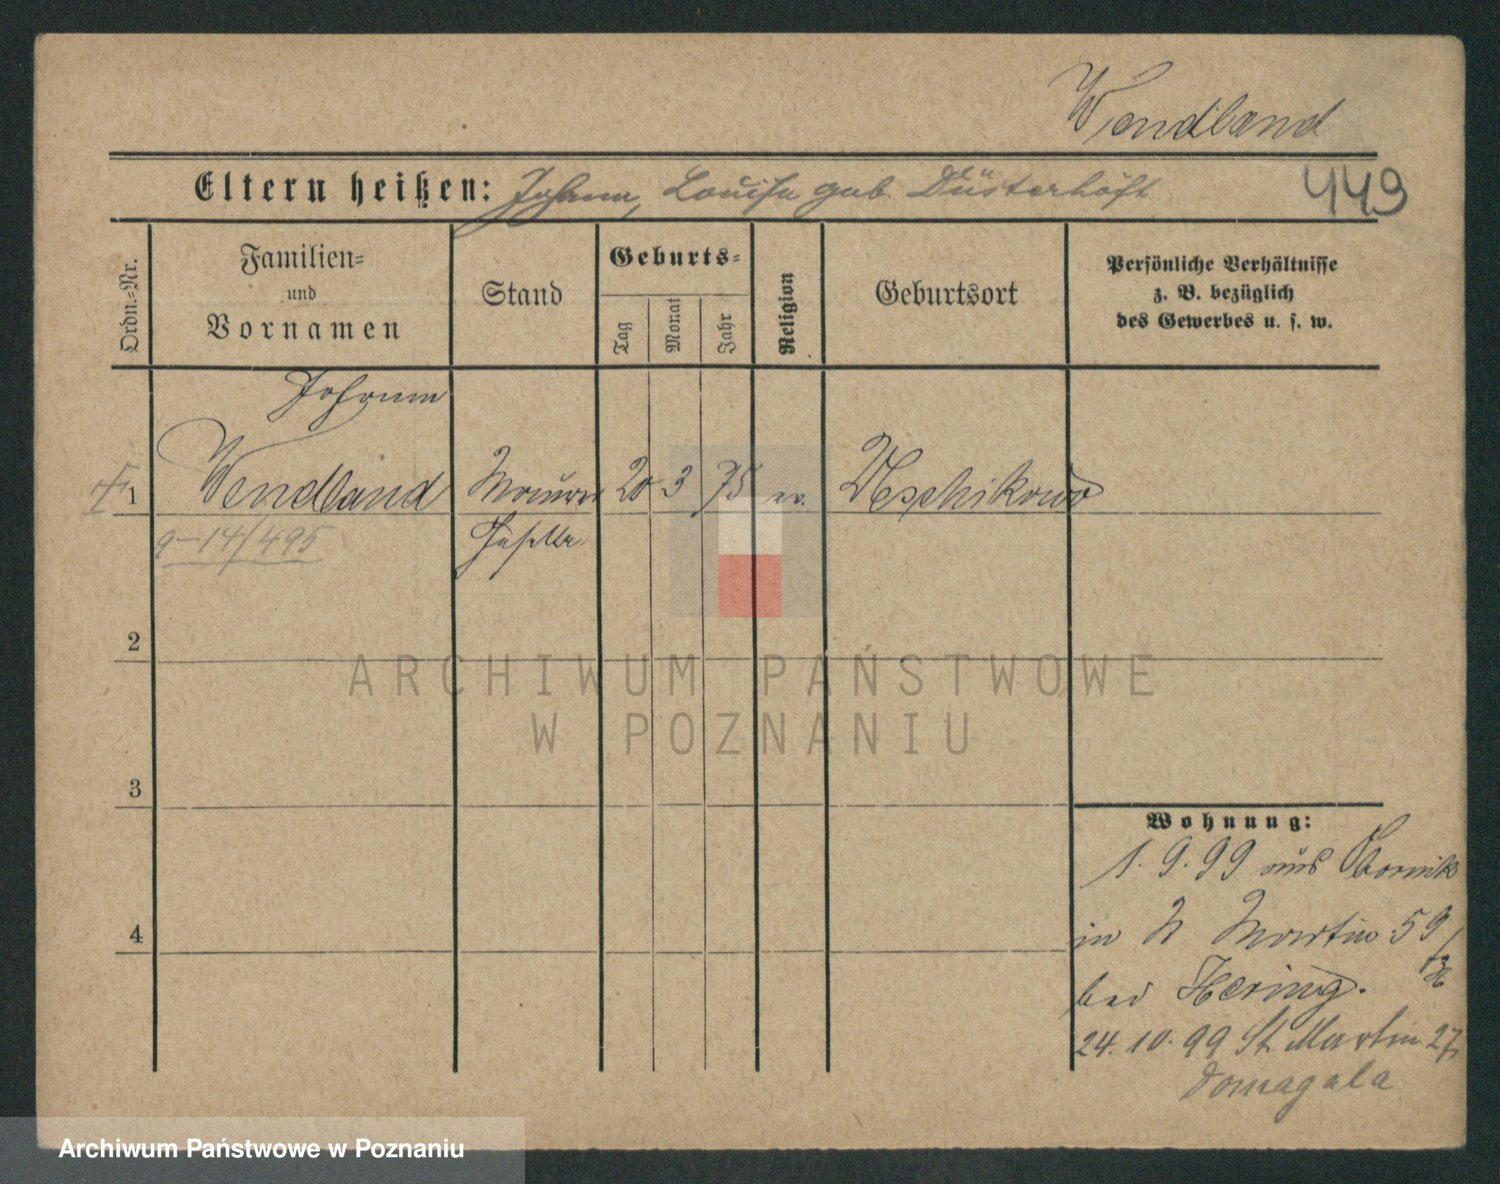 Wendland
Eltern heißen: Johann, Louise geb. Düsterhöft
449
Ordn.-Nr.
Familien-
und
Vornamen
Stand
Geburts-
Tag
Monat
Jahr
Religion
Geburtsort
Persönliche Verhältnisse
z. B. bezüglich
des Gewerbes u. s. w.
Johann
1 Wendland Maurer 20 3 75 ev.
9-14/495
Geselle
2
ARCHIWUM PAŃSTWOWE
W POZNANIU
3
Wohnung:
1.9.99 aus Obornik
in St Martin 59
bei Hering.
4
24.10.99 St. Martin 27
Domagala
Archiwum Państwowe w Poznaniu